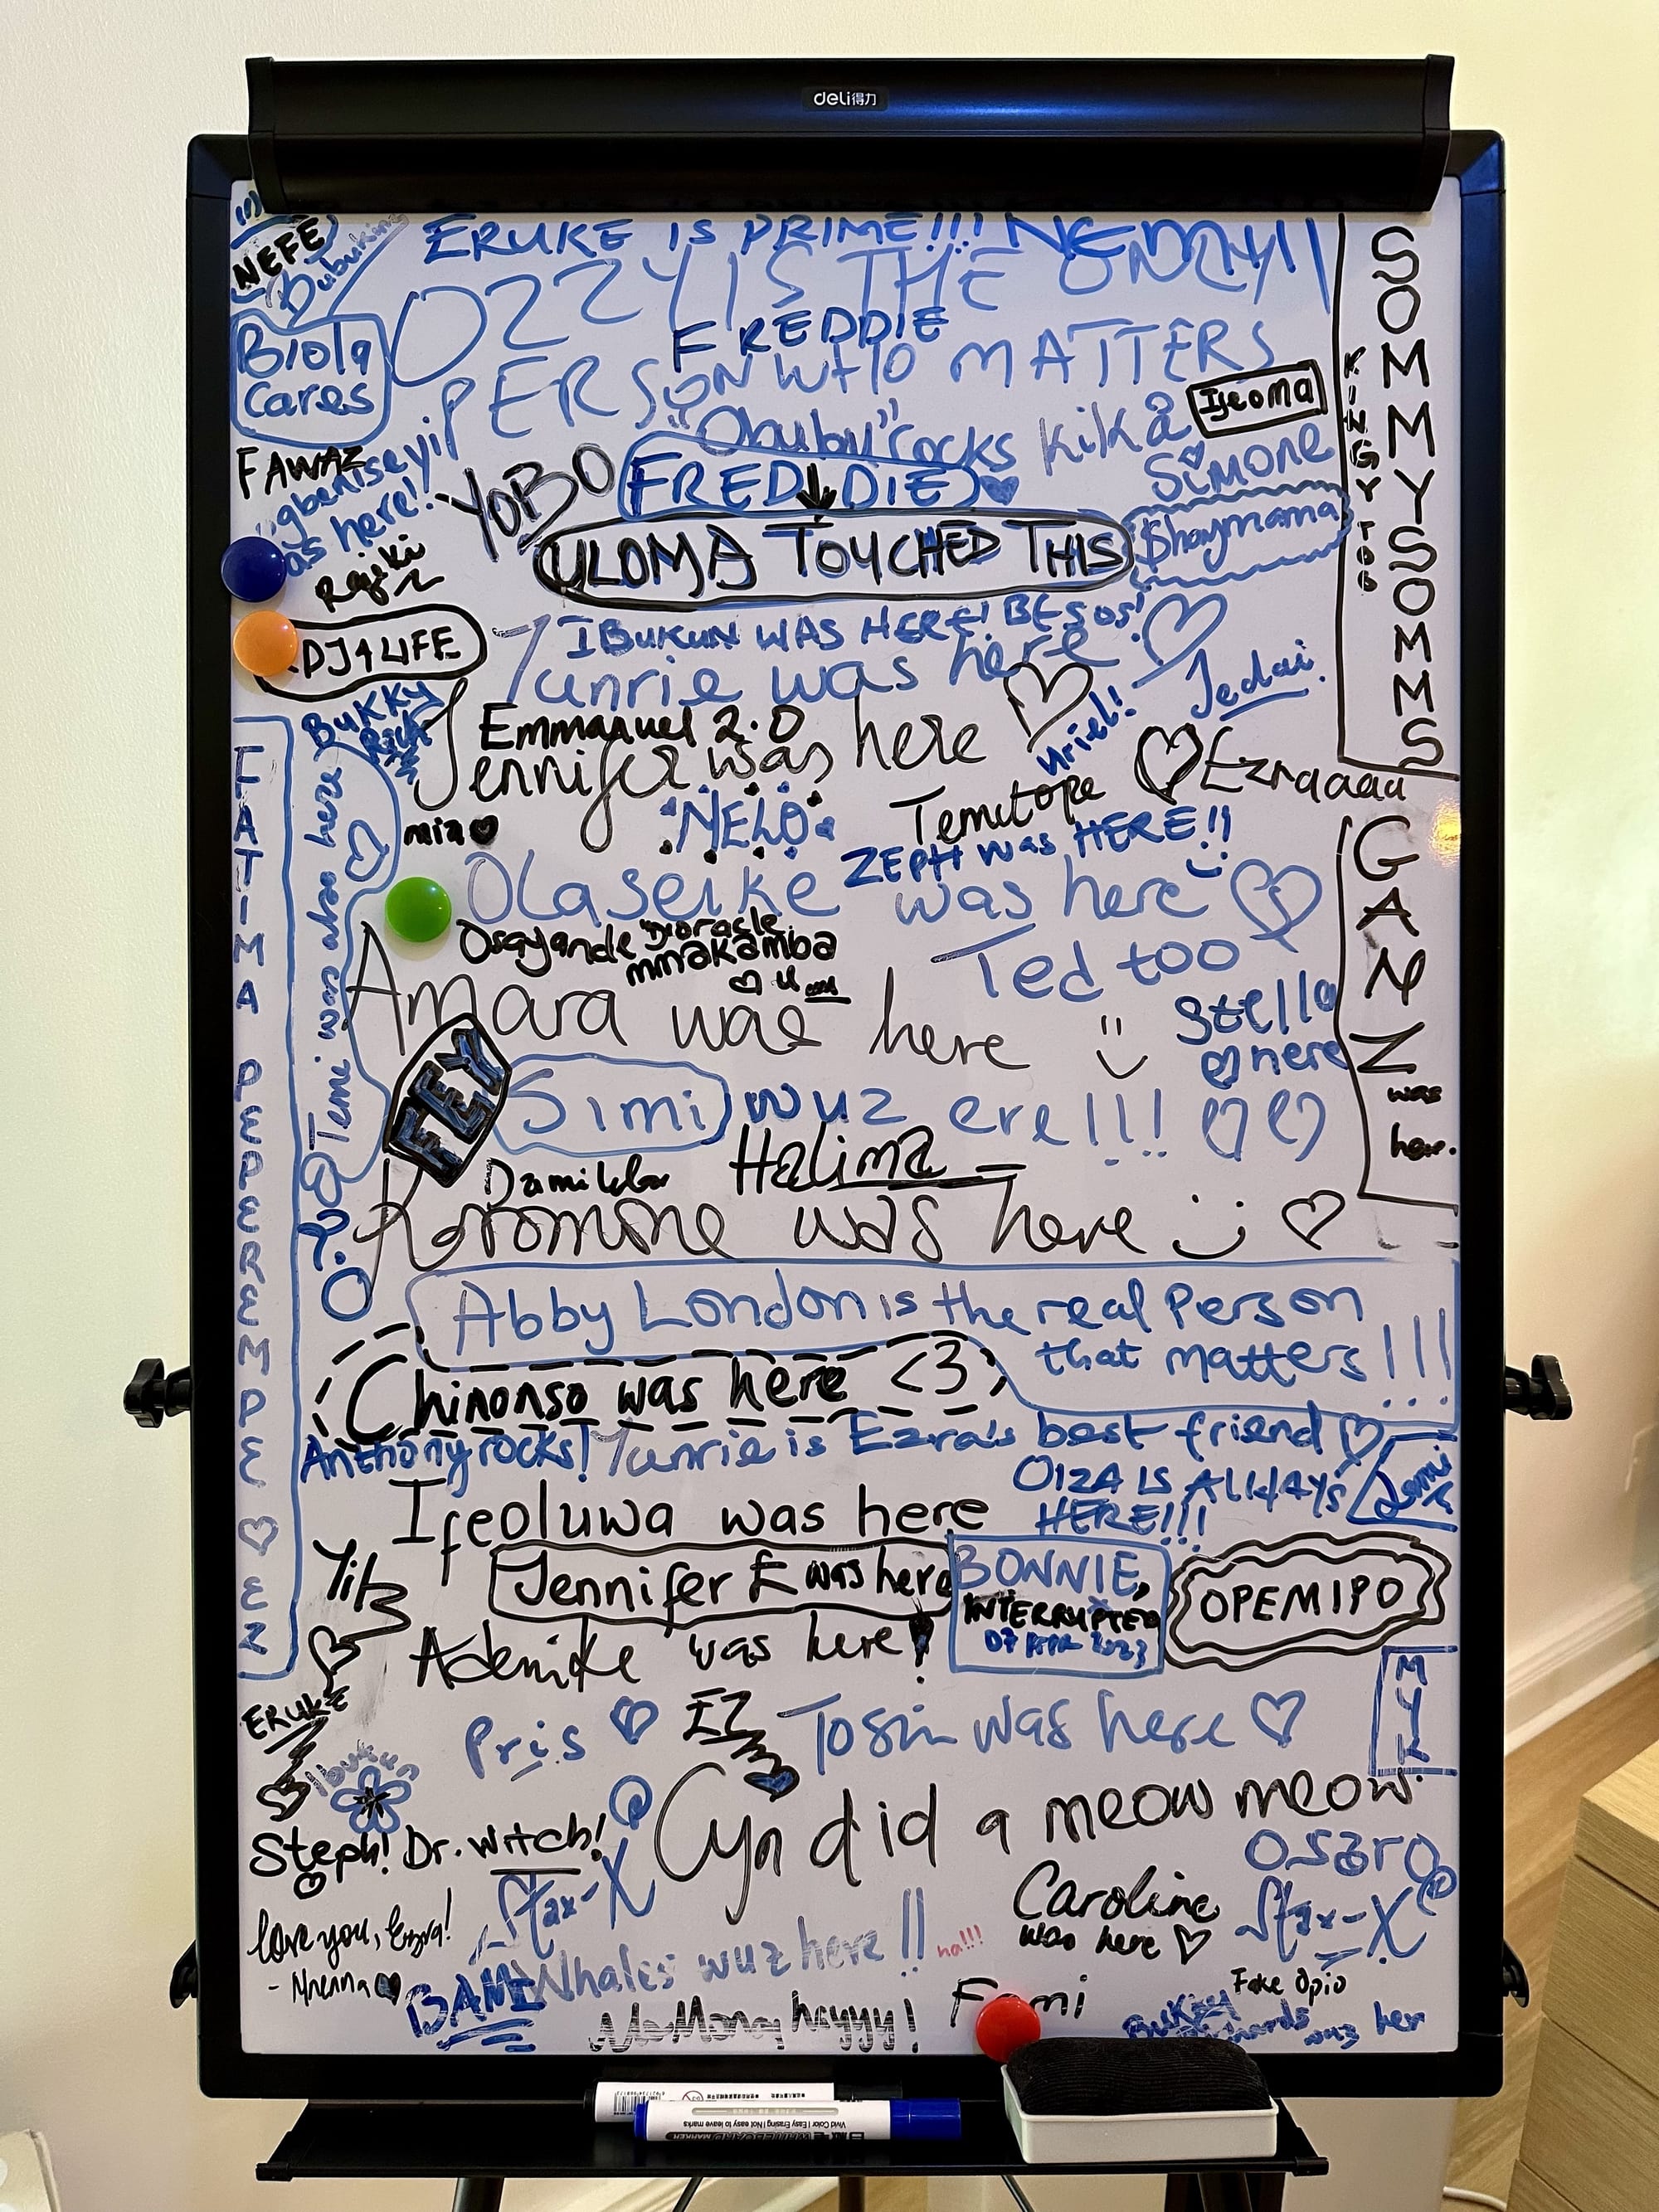 deli得力
NEFE
Bubuking
ERUKE IS PRIME!!!
OZZY IS THE ONLY
FREDDIE
PERSON WHO MATTERS
Biola
Cares
"Obuby" rocks
Kika
Ijeoma
Simone
SOMMYSOMMS
KINGYTOB
FAWAZ
as here!
YOBO
FREDDIE
ULOMA TOUCHED THIS
Shaymama
DJ4LIFE
IBUKUN WAS HERE! BESOS!
Yunrie was here
Jedai.
BUKKY
Rich
Emmanuel 2.0
Jennifer was here
Uriel!
Ezraaaa
mia
NELO
Temitope
ZEPH was HERE!!
Olaseike was here
Osayande
mmakamba
Ted too
Amara was here
Stella
here
GANZ
was
her.
Temi was also here
FEY
Simi wuz ere!!!
Halima
Koromone was here
FATIMA PEPEREMPE EZ
Abby London is the real Person
that matters!!!
Chinonso was here <3
Anthony rocks!
Yunrie is Ezra's best friend
OIZA IS ALWAYS
HERE!!!
Ifeoluwa was here
Jennifer E was here
BONNIE,
INTERRUPTED
07 APR 2023
OPEMIPO
Adenike was here!
MYK
ERUKE
Pris
EZ
Tosin was here
Ibukun
Cyn did a meow meow
Steph! Dr. Witch!
Osaro
Stax-X
Caroline
was here
Stax-X
love you, Ezra!
- Nnenna
Whales wuz here!!
ha!!!
BAMI
heyyy!
Femi
Fake Opio
Bukky
wuz her
Vivid Color | Easy Erasing | Not easy to leave marks
WHITEBOARD MARKER